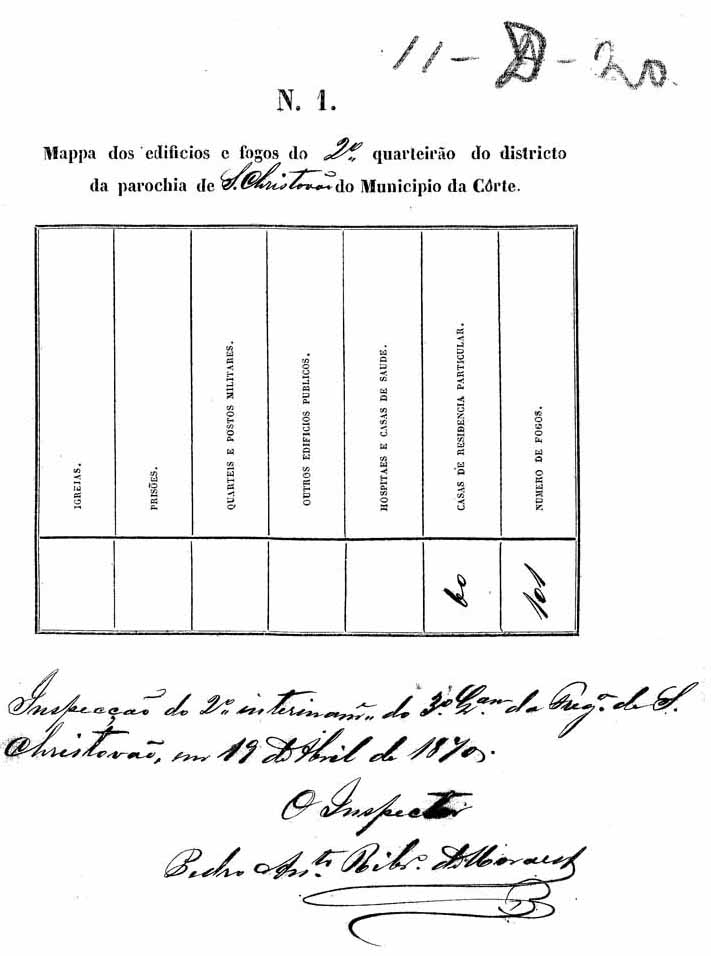 11-D-20
N. 1.
Mappa dos edificios e fogos do 2º quarteirão do districto
da parochia de S. Christovão do Municipio da Côrte.
IGREJAS.
PRISÕES.
QUARTEIS E POSTOS MILITARES.
OUTROS EDIFICIOS PUBLICOS.
HOSPITAES E CASAS DE SAUDE.
CASAS DE RESIDENCIA PARTICULAR.
NUMERO DE FOGOS.
60
101
Inspecção do 2º interinamº do 3º da Fregª de S.
Christovão, em 19 de Abril de 1870.
O Inspector
Pedro Antº Ribrº de Moraes